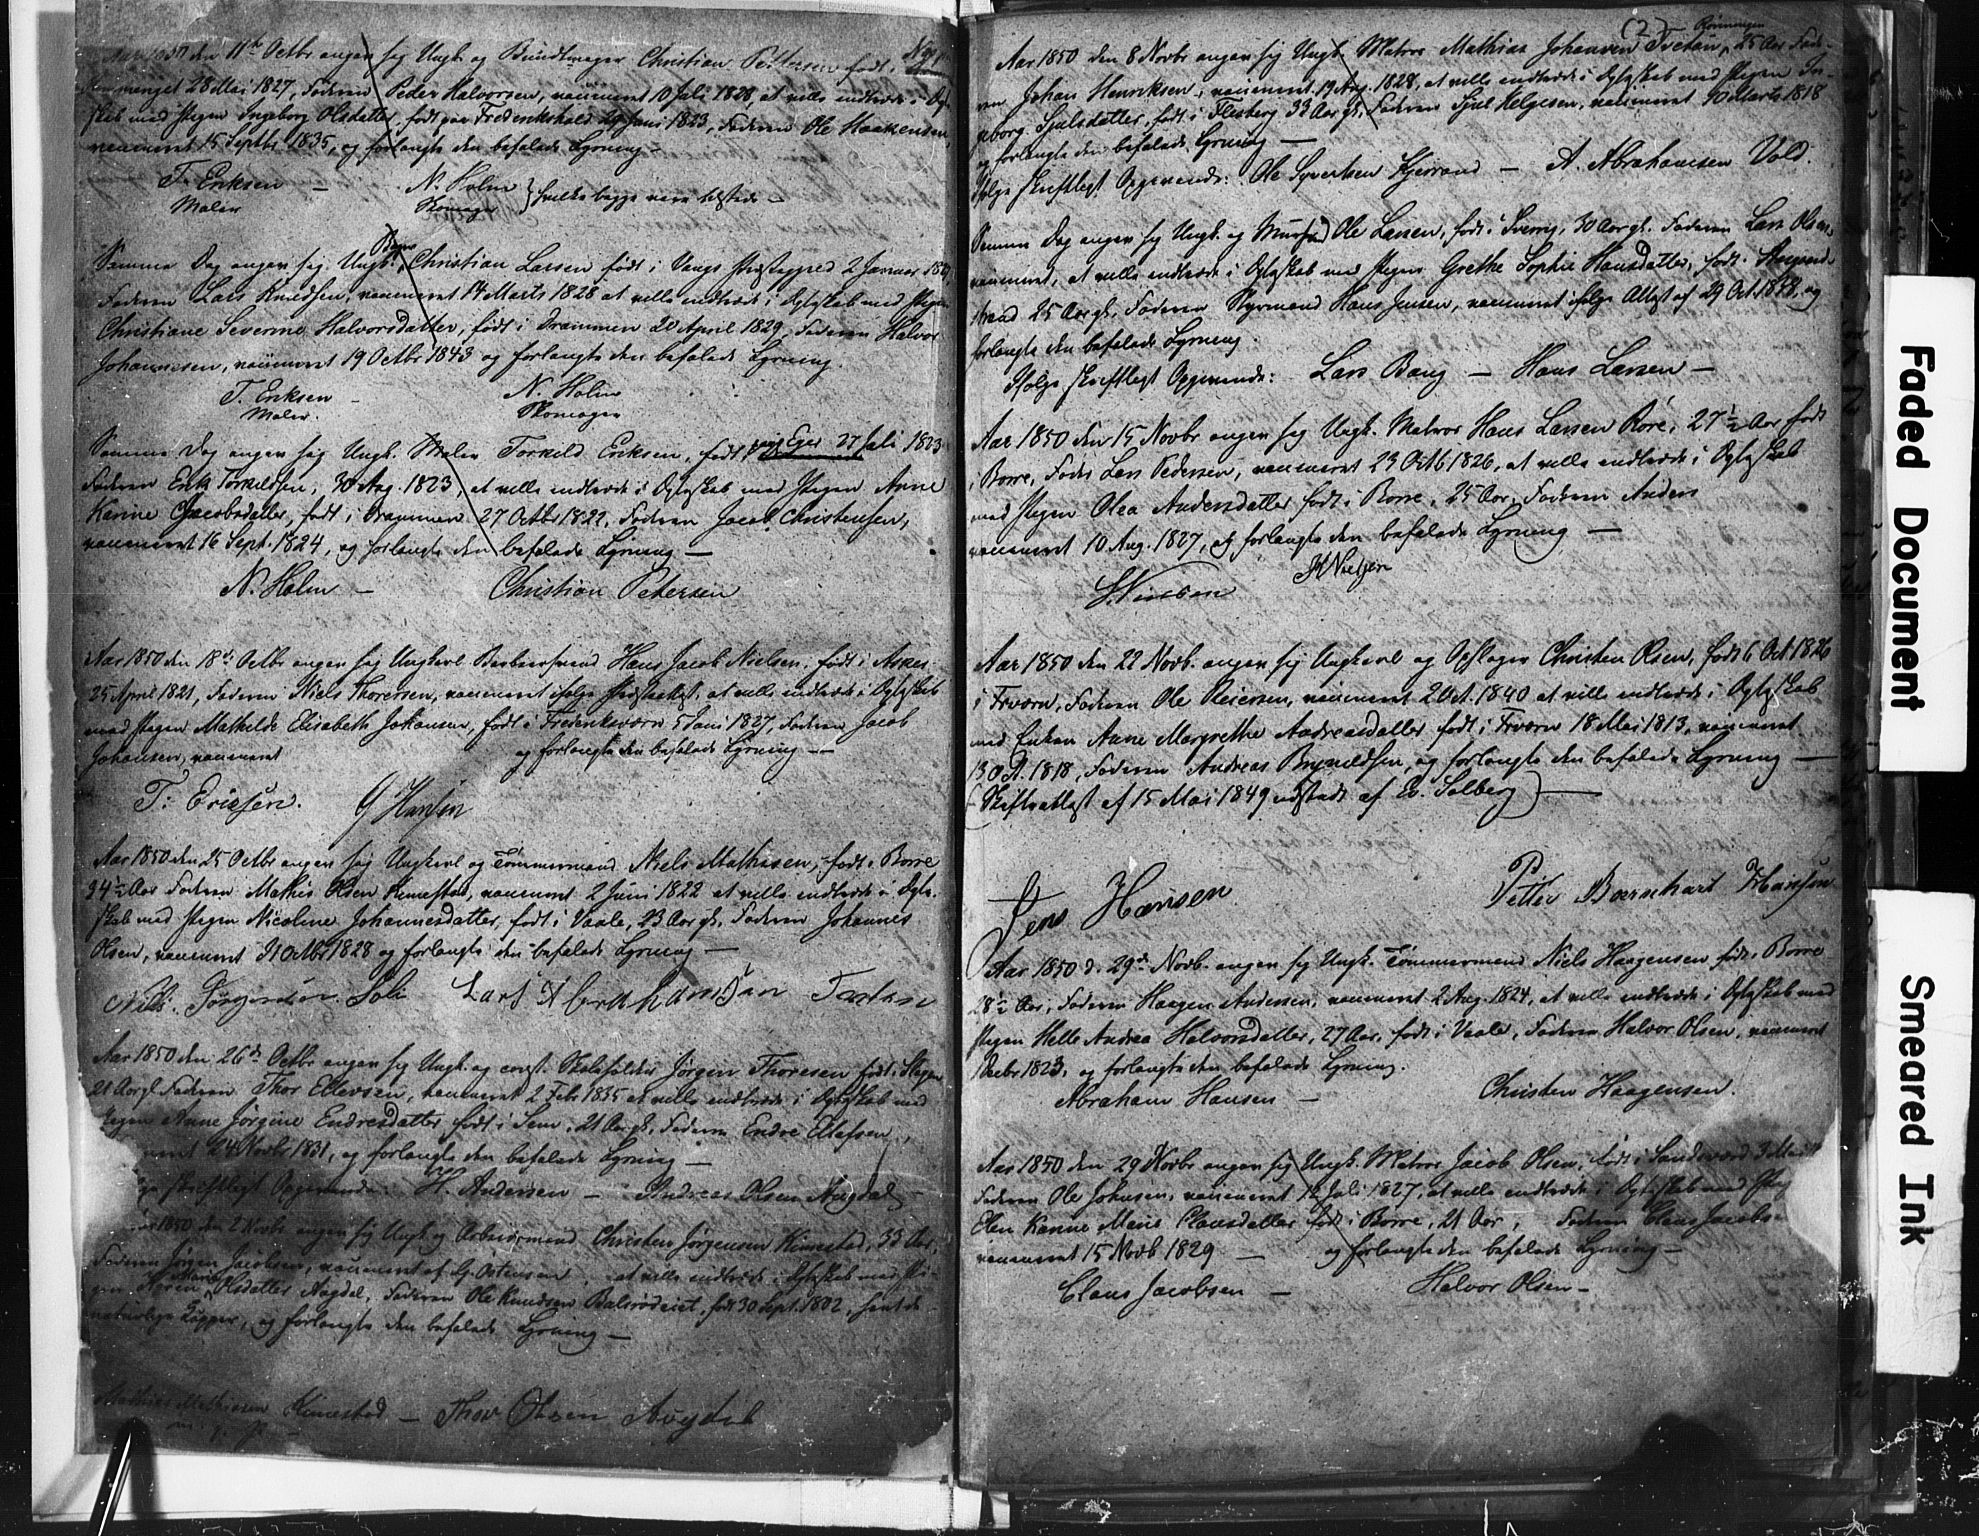 Aar 1850 den 11te Octbr angav sig Ungk. og Bundtmager Christian Pettersen født i
28 Mai 1827, Faderen Peder Halvorsen, vaccineret 10 Juli 1828, at ville indtræde i Ægte-
skab med Pigen Ingeborg Olsdatter, født paa Frederikshald 29 Juni 1823, Faderen Ole Haakensen,
vaccineret 15 Septbr 1835, og forlangte den befalede Lysning —
T. Eriksen — N. Holm } hvilke begge vare tilstede —
Maler Skomager
Samme Dag angav sig Ungk. Christian Larsen født i Vangs Præstegjeld 2 Januar
Faderen Lars Knudsen, vaccineret 14 Marts 1828 at ville indtræde i Ægteskab med Pigen
Christiane Severine Halvorsdatter, født i Drammen 20 April 1829, Faderen Halvor
Johannesen, vaccineret 19 Octbr 1843 og forlangte den befalede Lysning.
T. Eriksen — N. Holm
Maler. Skomager
Samme Dag angav sig Ungk. Maler Torkild Eriksen, født paa Eger 27 Juli 1823
Faderen Erik Torkildsen, 30 Aug. 1823, at ville indtræde i Ægteskab med Pigen Anne
Karine Jacobsdatter, født i Drammen 27 Octbr 1822, Faderen Jacob Christensen,
vaccineret 16 Sept. 1824, og forlangte den befalede Lysning —
N. Holm — Christian Petersen
Aar 1850 den 18de Octbr angav sig Ungkarl Barbeersvend Hans Jacob Nielsen, født i Asker
25 April 1821, Faderen Niels Thoresen, vaccineret ifølge Præsteattest, at ville indtræde i Ægteskab
med Pigen Mathilde Elisabeth Johansen, født i Frederiksværn 5 Juni 1827, Faderen Jacob
Johansen, vaccineret og forlangte den befalede Lysning —
T: Ericsen. G Hansen
Aar 1850 den 25 Octbr angav sig Ungkarl og Tømmermand Niels Mathisen, født i Borre
34½ Aar Faderen Mathis Olsen Kimestad, vaccineret 2 Juni 1822 at ville indtræde i Ægte-
skab med Pigen Nicoline Johannesdatter, født i Vaale, 23 Aar gl. Faderen Johannes
Olsen, vaccineret 31 Octbr 1828 og forlangte den befalede Lysning —
Nils Lars Abrahamsan
Aar 1850 den 26de Octbr angav sig Ungk. og const. Skolefolder Jørgen Thoresen født i Slagen
21 Aar gl. Faderen Thor Ellevsen, vaccineret 2 Febr 1835 at ville indtræde i Ægteskab med
Pigen Anne Jørgine Endresdatter født i Sem, 21 Aar gl. Faderen Endre Ellefsen,
24 Novbr 1831, og forlangte den befalede Lysning —
skriftligt Opgivende: H. Andersen — Andreas Olsen Augdal —
1850 den 2 Novbr angav sig Ungk. og Arbeidsmand Christen Jørgensen Kimestad, 33 Aar,
Faderen Jørgen Jacobsen, vaccineret af G. Østensen, at ville indtræde i Ægteskab med Pi-
gen Karen Maria Olsdatter Augdal, Faderen Ole Knudsen Balsrødeiet, født 30 Sept. 1802, havt de
naturlige Kopper, og forlangte den befalede Lysning —
Mathias Mathiasen Kimestad — Thor Olsen Augdal
(2)
Aar 1850 den 8 Novbr angav sig Ungk. Matros Mathias Johansen Tvetan, 25 Aar Fade-
ren Johan Henriksen, vaccineret 19 Aug. 1828, at ville indtræde i Ægteskab med Pigen In-
geborg Sjulsdatter, født i Flesberg 33 Aar gl. Faderen Sjul Helgesen, vaccineret 30 Marts 1818
og forlangte den befalede Lysning —
Ifølge skriftligt Opgivende: Ole Syvertsen — A. Abrahamsen Vold.
Samme Dag angav sig Ungk. og Ole Larsen, født i Sverrig, 30 Aar gl. Faderen Lars Olsen,
vaccineret, at ville indtræde i Ægteskab med Pigen Grethe Sophie Hansdatter, født i
25 Aar gl. Faderen Styrmand Hans Jensen, vaccineret ifølge Attest af 29 Oct. 1848, og
forlangte den befalede Lysning.
Ifølge skriftligt Opgivende: Lars Bang — Hans Larsen —
Aar 1850 den 15 Novbr angav sig Ungk. Matros Hans Larsen Røre, 27½ Aar født
i Borre, Fader Lars Pedersen, vaccineret 23 Octb 1826, at ville indtræde i Ægteskab
med Pigen Olea Andersdatter født i Borre, 25 Aar, Faderen Anders
vaccineret 10 Aug. 1827, og forlangte den befalede Lysning —
Aar 1850 den 22 Novb. angav sig Ungkarl og Opslager Christen Olsen, født 6 Oct. 1826
i Frværn, Faderen Ole Reiersen, vaccineret 2 Oct. 1840 at ville indtræde i Ægteskab
med Enken Anne Margrethe Andreasdatter født i Frværn 18 Mai 1813, vaccineret
13 Oct. 1818, Faderen Andreas Brynildsen, og forlangte den befalede Lysning —
(Skifteattest af 15 Mai 1849 udstædt af Ev. Solberg) —
Jens Hansen Petter Bærnhart Hansen
Aar 1850 d. 29de Novb. angav sig Ungk. Tømmermand Niels Haagensen født i Borre
28½ Aar, Faderen Haagen Andersen, vaccineret 2 Aug. 1824, at ville indtræde i Ægteskab med
Pigen Helle Andrea Halvorsdatter, 27 Aar, født i Vaale, Faderen Halvor Olsen, vaccineret
1823, og forlangte den befalede Lysning.
Abraham Hansen — Christen Haagensen.
Aar 1850 den 29 Novbr angav sig Ungk. Matros Jacob Olsen, født i Sandsværd 3
Faderen Ole Johnsen, vaccineret 12 Juli 1827, at ville indtræde i Ægteskab med Pig
Elen Karine Marie Clausdatter født i Borre, 21 Aar, Faderen Claus Jacobs
vaccineret 15 Novb 1829 — og forlangte den befalede Lysning —
Claus Jacobsen — Halvor Olsen —
Faded Document
Smeared Ink